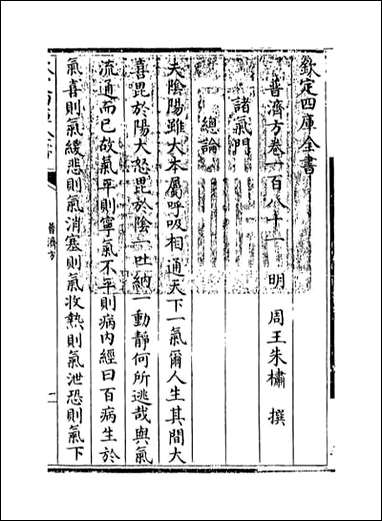 欽定四庫全書
普濟方卷一百八十一 明 周王朱橚 撰
諸氣門
總論
夫陰陽雖大本屬呼吸相通天下一氣爾人生其間大
喜毘於陽大怒毘於陰一吐納一動靜何所逃哉與氣
流通而已故氣平則寧氣不平則病内經曰百病生於
氣喜則氣緩悲則氣消塞則氣收熱則氣泄恐則氣下
普濟方